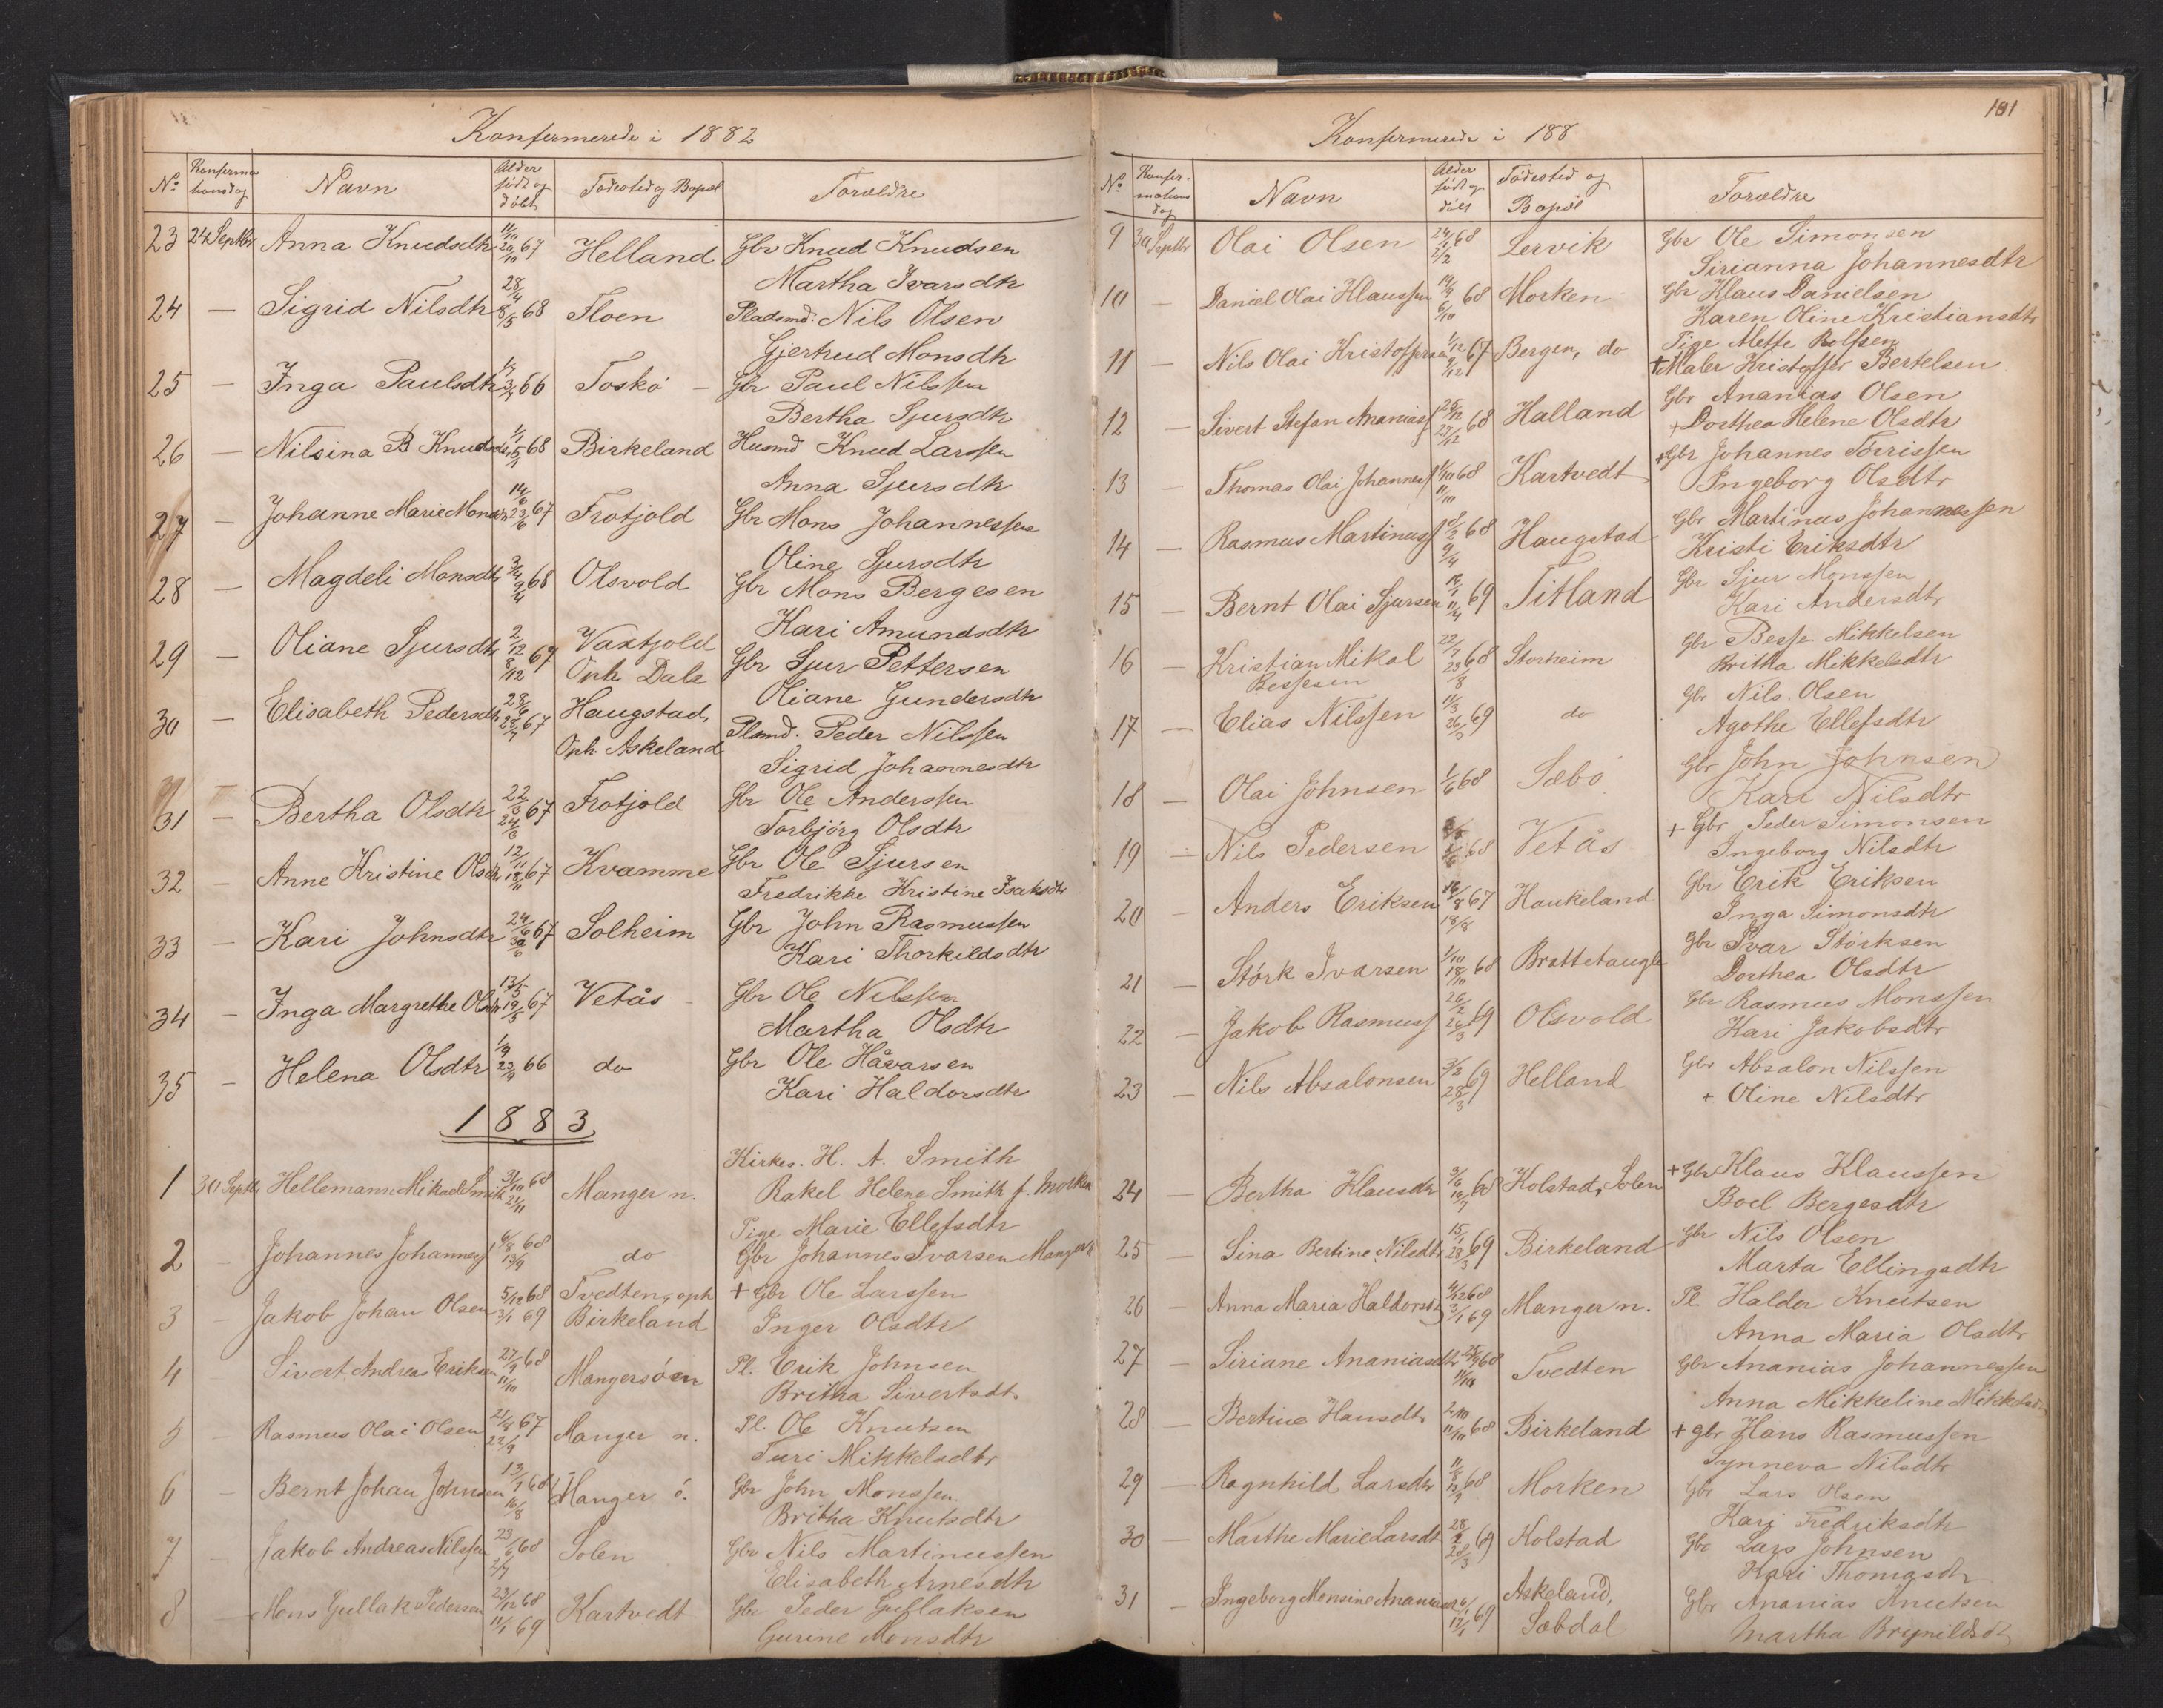 Konfermerede i 1882
No Konfermationsdag Navn Alder født og døbt Fødested og Bopæl Forældre
23 24 Septbr Anna Knudsdtr 67 Helland Gbr Knud Knudsen
Martha Ivarsdtr
24 — Sigrid Nilsdtr 28/4 8/5 68 Floen Pladsmd. Nils Olsen
Gjertrud Monsdtr
25 — Inga Paulsdtr 66 Toskø — Gbr Paul Nilssen
Bertha Sjursdtr
26 — Nilsina B Knudsdtr 68 Birkeland Husmd Knud Larssen
Anna Sjursdtr
27 — Johanne Marie Monsdtr 14/6 23/6 67 Frotjold Gbr Mons Johannessen
Oline Sjursdtr
28 — Magdeli Monsdtr 9/4 68 Olsvold Gbr Mons Bergesen
Kari Amundsdtr
29 — Oliane Sjursdtr 2/12 8/12 67 Vaxtjold Gbr Sjur Pettersen
Oph Dale
Oliane Gundersdtr
30 — Elisabeth Pedersdtr 67 Haugstad, Plsmd. Peder Nilssen
Oph. Askeland
Sigrid Johannesdtr
31 — Bertha Olsdtr 22/3 24/3 67 Frotjold Gbr Ole Anderssen
Torbjørg Olsdtr
32 — Anne Kristine Olsdtr 12/11 18/11 67 Kvamme Gbr Ole Sjursen
Fredrikke Kristine Isaksdtr
33 — Kari Johnsdtr 24/6 30/6 67 Solheim Gbr John Rasmussen
Kari Thorkildsdtr
34 — Inga Margrethe Olsdtr 13/5 19/5 67 Vetås — Gbr Ole Nilssen
Martha Olsdtr
35 — Helena Olsdtr 1/9 23/9 66 do Gbr Ole Håvarsen
Kari Haldorsdtr
1883
1 30 Septbr Hellemann Mikael Smith 31/10 68 21/11 Manger n. Kirkes. H. A. Smith
Rakel Helene Smith f. Morken
2 — Johannes Johanness 6/8 68 13/9 do Pige Marie Ellefsdtr
Gbr Johannes Ivarsen Manger
3 — Jakob Johan Olsen 5/12 68 3/1 69 Tvedten, oph + Gbr Ole Larssen
Birkeland Inger Olsdtr
4 — Sivert Andreas Eriksen 27/9 68 11/10 Mangersøen Pl. Erik Johnsen
Britha Sivertsdtr
5 — Rasmus Olai Olsen 21/8 67 22/9 Manger n. Pl. Ole Knutsen
Turi Mikkelsdtr
6 — Bernt Johan Johnsen 13/7 68 16/8 Manger ø. Gbr John Monssen
Britha Knutsdtr
7 — Jakob Andreas Nilssen 23/6 68 2/7 Solen Gbr Nils Martinussen
Elisabeth Arnesdtr
8 — Mons Gullak Pedersen 23/12 68 11/1 69 Kartvedt Gbr Peder Gullaksen
Gurine Monsdtr
101
Konfermerede i 188
No Konfermations dag Navn Alder født og døbt Fødested og Bopæl Forældre
9 30 Septbr Olai Olsen 24/1 68 2/2 Lervik Gbr Ole Simonsen
Sirianna Johannesdtr
10 — Daniel Olai Klaussen 68 Morken Gbr Klaus Danielsen
Karen Oline Kristiansdtr
11 — Nils Olai Kristoffersen 1/12 67 9/12 Bergen, do Pige Mette Rolfsen
+ Maler Kristoffer Bertelsen
12 — Sivert Stefan Ananiass 68 Halland Gbr Ananias Olsen
+ Dorthea Helene Olsdtr
13 — Thomas Olai Johanness 1/10 68 11/10 Kartvedt + Gbr Johannes Torrissen
Ingeborg Olsdtr
14 — Rasmus Martinuss 68 9/4 Haugstad Gbr Martinus Johannessen
Kristi Eriksdtr
15 — Bernt Olai Sjursen 69 Titland Gbr Sjur Monssen
Kari Andersdtr
16 — Kristian Mikal 22/7 23/8 68 Storheim Gbr Besse Mikkelsen
Bessesen Britha Mikkelsdtr
17 — Elias Nilssen 11/3 26/3 69 do Gbr Nils Olsen
Agothe Ellefsdtr
18 — Olai Johnsen 1/6 68 Sæbø Gbr John Johnsen
Kari Nilsdtr
19 — Nils Pedersen 68 Vetås + Gbr Peder Simonsen
Ingeborg Nilsdtr
20 — Anders Eriksen 67 18/8 Haukeland Gbr Erik Eriksen
Inga Simonsdtr
21 — Størk Ivarsen 1/10 18/10 68 Brattetaugle Gbr Ivar Størksen
Dorthea Olsdtr
22 — Jakob Rasmuss 26/2 26/3 69 Olsvold Gbr Rasmus Monssen
Kari Jakobsdtr
23 — Nils Absalonsen 28/3 69 Helland Gbr Absalon Nilssen
+ Oline Nilsdtr
24 — Bertha Klausdtr 68 Kolstad, Solen + Gbr Klaus Klaussen
Boel Bergesdtr
25 — Sina Bertine Nilsdtr 15/1 28/3 69 Birkeland Gbr Nils Olsen
Marta Ellingsdtr
26 — Anna Maria Haldorsdtr 68 3/1 69 Manger n. Pl Haldor Knutsen
Anna Maria Olsdtr
27 — Siriane Ananiasdtr 68 11/10 Tvedten Gbr Ananias Johannessen
Anna Mikkeline Mikkelsdtr
28 — Bertine Hansdtr 2/10 11/10 68 Birkeland + Gbr Hans Rasmussen
Synneva Nilsdtr
29 — Ragnhild Larsdtr 68 Morken Gbr Lars Olsen
Kari Fredriksdtr
30 — Marthe Marie Larsdtr 28/2 28/3 69 Kolstad Gbr Lars Johnsen
Kari Thomasdtr
31 — Ingeborg Monsine Ananiasdtr 69 Askeland, Gbr Ananias Knutsen
Sæbdal Martha Brynildsdtr